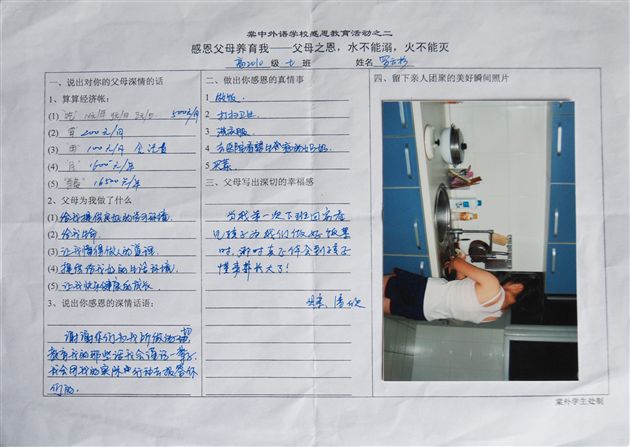 棠中外语学校感恩教育活动之二
感恩父母养育我——父母之恩，水不能溺，火不能灭
高2010 级 七 班 姓名
一、说出对你的父母深情的话
1、算算经济帐：
(1) "吃" 5000元/月
(2) "穿" 200元/月
(3) "用" 100元/月 生活费
(4) 16000元/年
(5) 16500元/年
2、父母为我做了什么
(1) 给我提供良好的学习环境.
(2) 给我生命.
(3) 让我懂得做人的道理.
(4) 提供给我好的生活环境.
(5) 让我快乐健康的成长.
3、说出你感恩的深情话语：
谢谢你们为我所做的一切
教育我的那些话我会谨记一辈子
我会用我的实际行动去报答你
们的.
二、做出你感恩的真情事
1 做饭.
2 打扫卫生.
3 洗衣服.
4
5 买菜.
三、父母写出深切的幸福感
当我第一次下班回家看
见孩子为我们做好饭菜
时,那时真正体会到孩子
懂事并长大了!
四、留下亲人团聚的美好瞬间照片
棠外学生处制